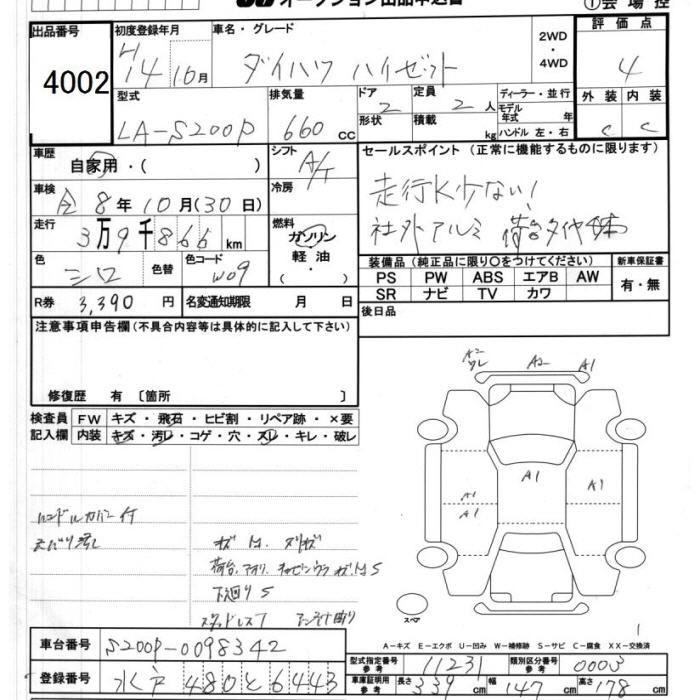 オークション出品申込書
①会場控
出品番号 4002
初度登録年月 H14 10月
車名・グレード ダイハツ ハイゼット
2WD・4WD
評価点 4
外装 内装
C C
型式 LA-S200P
排気量 660 CC
ドア 2
形状
定員 2人
積載 kg
ディーラー・並行
モデル年式 年
ハンドル 左・右
車歴 自家用・( )
シフト A/T
セールスポイント (正常に機能するものに限ります)
走行K少ない!
社外アルミ
車検 8年10月(30日)
冷房
走行 3万9千866km
燃料 ガソリン 軽油 ( ・ )
装備品 (純正品に限り○をつけてください)
新車保証書
PS PW ABS エアB AW
SR ナビ TV カワ
有・無
色 シロ
色替
色コード W09
R券 3,390円
名変通知期限 月 日
後日品
注意事項申告欄 (不具合内容等は具体的に記入して下さい)
修復歴 有 〔箇所 〕
検査員記入欄
FW キズ・飛石・ヒビ割・リペア跡・×要
内装 キズ・汚レ・コゲ・穴・スレ・キレ・破レ
A2 ワレ A2 A1
A1 A1
A1
A1
ハンドルカバー付
下廻りS
スペア
A-キズ E-エクボ U-凹み W-補修跡 S-サビ C-腐食 XX-交換済
車台番号 S200P-0098342
登録番号 水戸 480 と 6443
型式指定番号 参考 11231
類別区分番号 参考 0003
車庫証明用 参考 長さ 339cm 幅 147cm 高さ 178cm